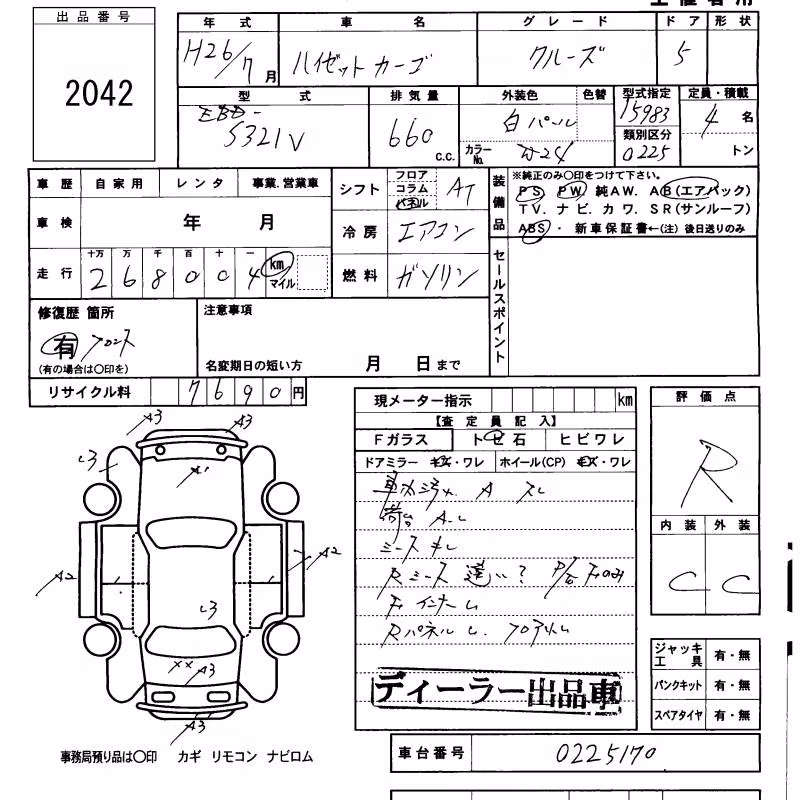 出品番号
2042
年式 車名 グレード ドア 形状
H26/7月 ハイゼットカーゴ クルーズ 5
型式 排気量 外装色 色替 型式指定 定員・積載
EBD-
S321V 660 C.C. 白パール 15983 4名
カラーNo. W24 類別区分 0225 トン
車歴 自家用 レンタ 事業.営業車
シフト フロア コラム パネル AT
装備品
※純正のみ○印をつけて下さい。
PS PW 純AW. AB(エアバック)
TV. ナビ. カワ. SR(サンルーフ)
ABS・ 新車保証書←(注) 後日送りのみ
車検 年 月
冷房 エアコン
走行 十万 万 千 百 十 一
268004 km マイル
燃料 ガソリン
セールスポイント
修復歴 箇所
有 フロント
(有の場合は○印を)
注意事項
名変期日の短い方 月 日まで
リサイクル料 7690円
現メーター指示 km
【査定員記入】
Fガラス トビ石 ヒビワレ
ドアミラー キズ・ワレ ホイール(CP) キズ・ワレ
荷台 A.
F インナー
Rパネル
ディーラー出品車
評価点
R
内装 外装
C C
A3 A3
A1
A2 A2
××A3
A3
ジャッキ 工具 有・無
パンクキット 有・無
スペアタイヤ 有・無
事務局預り品は○印 カギ リモコン ナビロム
車台番号 0225170